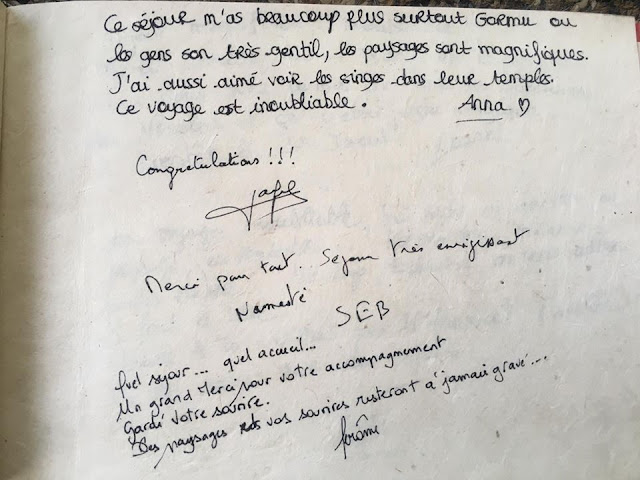 Ce séjour m'as beaucoup plus surtout Gormu ou
les gens son très gentil, les paysages sont magnifiques.
J'ai aussi aimé voir les singes dans leur temples.
Ce voyage est inoubliable. Anna ♡
Congratulations !!!
Merci pour tout. Séjour très enrigissant
Namesté
SEB
Quel séjour... quel accueil...
Un grand Merci pour votre accompagnement
Gardé votre sourire.
Des paysages et vos sourires resteront à jamais gravé...
Jérôme